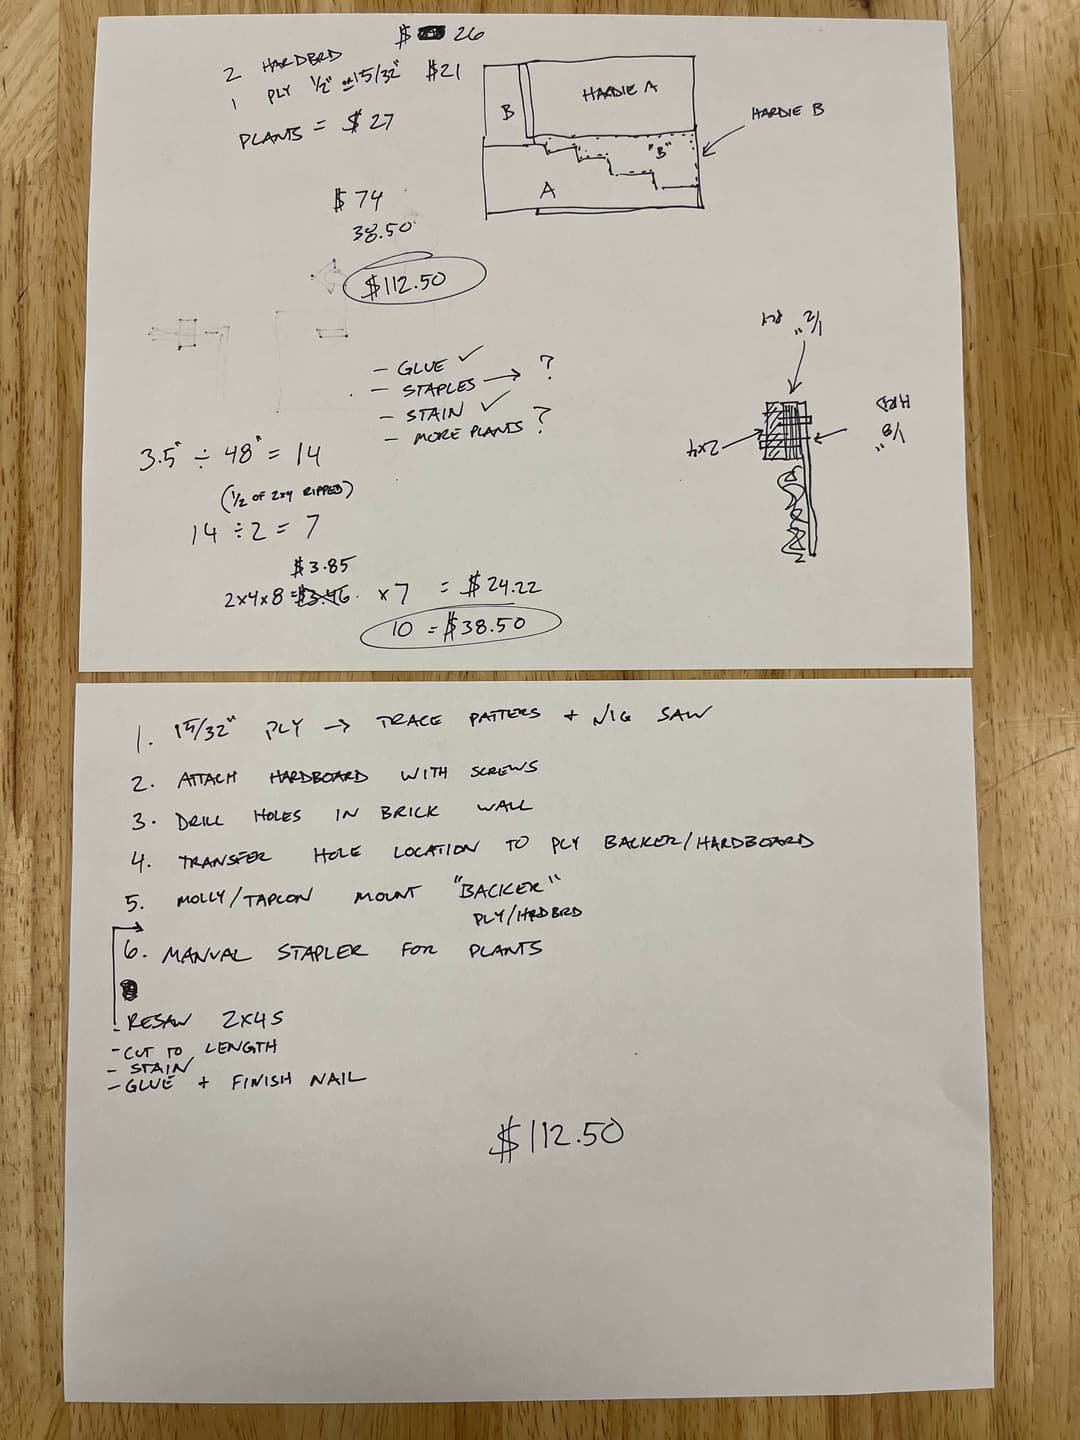 $ 26
2 HARDBRD
1 PLY 1/2" or 15/32" $21
PLANTS = $27
$74
38.50
$112.50
B
HARDIE A
HARDIE B
"B"
A
- GLUE ✓
- STAPLES → ?
- STAIN ✓
- MORE PLANTS ?
3.5" ÷ 48" = 14
(1/2 OF 2x4 RIPPED)
14 ÷ 2 = 7
$3.85
2x4x8 = $3.46 x 7 = $24.22
10 = $38.50
1/2" PLY
2x4
1/8" HRD
1. 15/32" PLY → TRACE PATTERS + JIG SAW
2. ATTACH HARDBOARD WITH SCREWS
3. DRILL HOLES IN BRICK WALL
4. TRANSFER HOLE LOCATION TO PLY BACKER/HARDBOARD
5. MOLLY/TAPCON MOUNT "BACKER"
PLY/HRDBRD
6. MANUAL STAPLER FOR PLANTS
- RESAW 2x4S
- CUT TO LENGTH
- STAIN
- GLUE + FINISH NAIL
$112.50